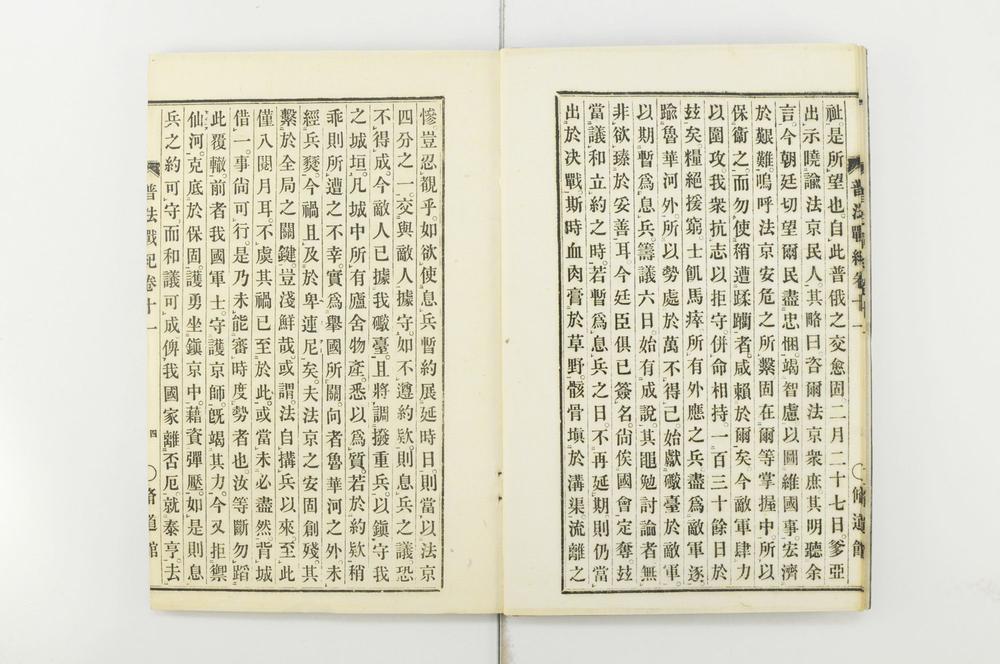 祉。是所望也。自此普俄之交愈固二月二十七日爹亞
出示曉諭法京民人其略曰咨爾法京衆庶其明聽余
言今朝廷切望爾民盡忠悃竭智慮以圖維國事宏濟
於艱難。嗚呼法京安危之所繫固在爾等掌握中所以
保衞之而勿使稍遭蹂躪者咸賴於爾矣今敵軍肆力
以圍攻我衆抗志以拒守。併命相持。一百三十餘日於
玆矣糧絕援窮士飢馬瘁所有外應之兵盡爲敵軍逐
踰魯華河外所以勢處於萬不得已始獻礮臺於敵軍
以期暫爲息兵籌議六日始有成說其黽勉討論者無
非欲臻於妥善耳今廷臣俱已簽名尙俟國會定奪玆
當議和立約之時若暫爲息兵之日不再延期則仍當
出於決戰斯時血肉膏於草野骸骨塡於溝渠流離之
普法戰紀卷十一
脩道館
慘豈忍觀乎。如欲使息兵暫約展延時日則當以法京
四分之一交與敵人據守如不遵約欵則息兵之議恐
不得成今敵人已據我礮臺且將調撥重兵以鎭守我
之城垣凡城中所有廬舍物產悉以爲質若於約欵稍
乖則所遭之不幸實爲舉國所關向者魯華河之外未
經兵燹今禍且及於卑連尼矣夫法京之安固創殘其
繫於全局之關鍵豈淺鮮哉或謂法自搆兵以來至此
僅八閱月耳不虞其禍已至於此或當未必盡然背城
借一事尙可行是乃未能審時度勢者也汝等斷勿蹈
此覆轍前者我國軍士守護京師旣竭其力今又拒禦
仙河克底於保固護勇坐鎭京中藉資彈壓如是則息
兵之約可守而和議可成俾我國家離否厄就泰亨去
普法戰紀卷十一
四
脩道館